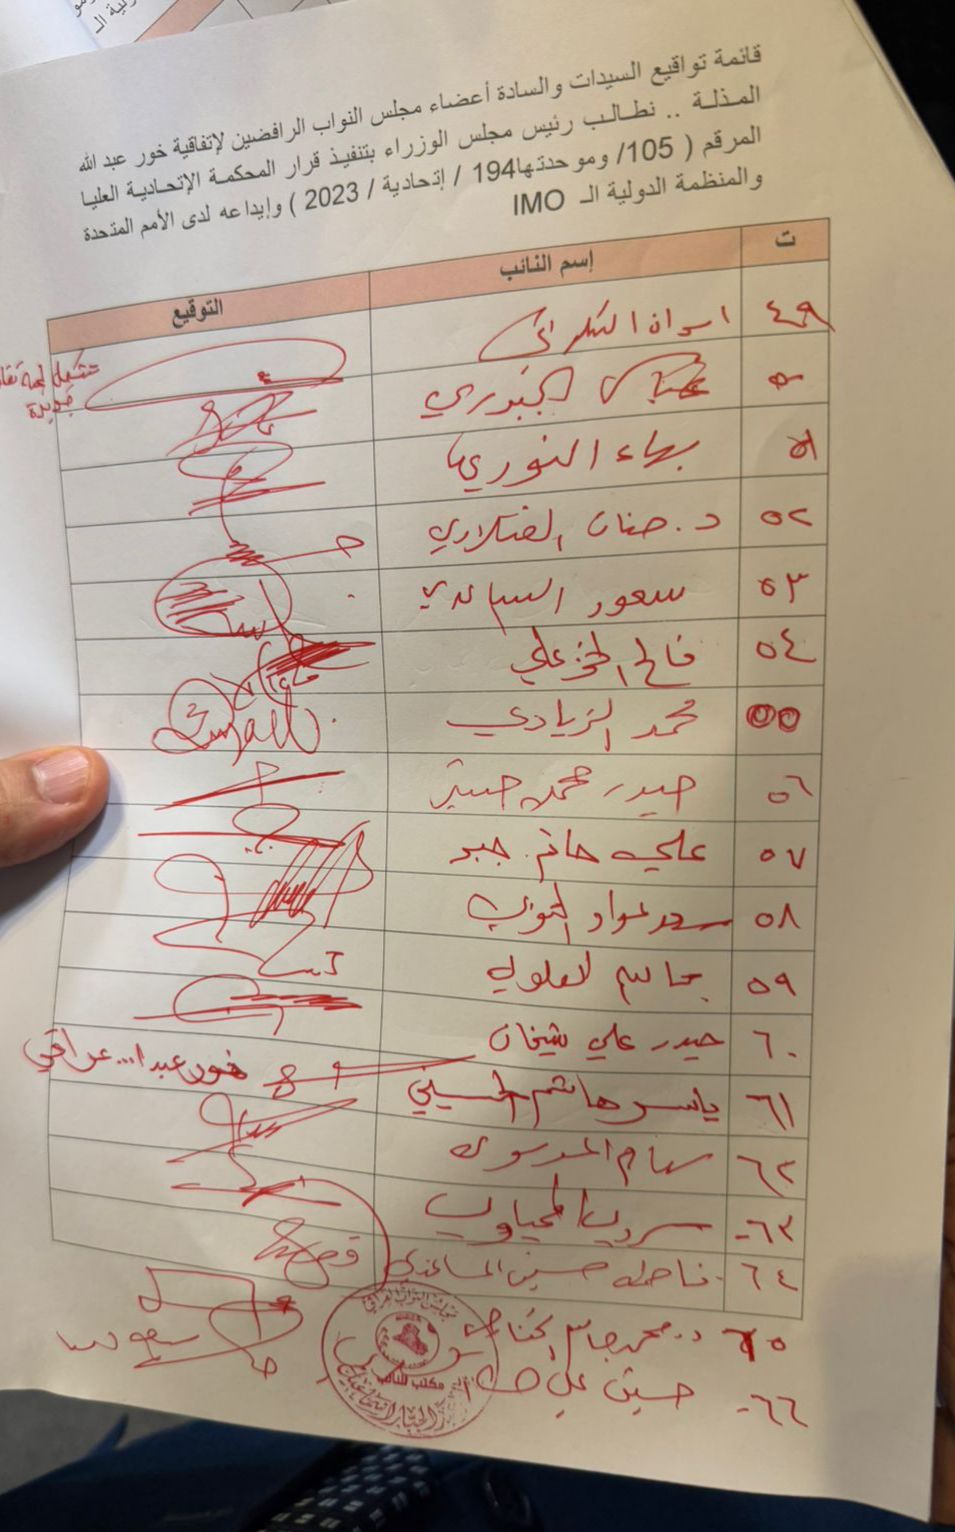 قائمة تواقيع السيدات والسادة أعضاء مجلس النواب الرافضين لإتفاقية خور عبد الله
المذلة .. نطالب رئيس مجلس الوزراء بتنفيذ قرار المحكمة الإتحادية العليا
المرقم ( 105/ وموحدتها194 / إتحادية / 2023 ) وإيداعه لدى الأمم المتحدة
والمنظمة الدولية الـ IMO
ت إسم النائب التوقيع
٤٩
٥٠ الجبوري
٥١ بهاء النوري
٥٢ د. حنان الفتلاوي
٥٣ سعود الساعدي
٥٤ فالح الخزعلي
٥٥ محمد الزيادي
٥٦ حيدر محمد
٥٧ علي جبر
٥٨ سعد عواد التوبي
٥٩ جاسم العلوي
٦٠ حيدر علي شيخان
٦١ ياسر هاشم الحسيني
خور عبدا... عراقي
٦٢ سهام الموسوي
٦٣-
٦٤ فاطمة حسين الساعدي
٦٥ د. محمد جاسم
٦٦- حسين علي
مكتب النائب